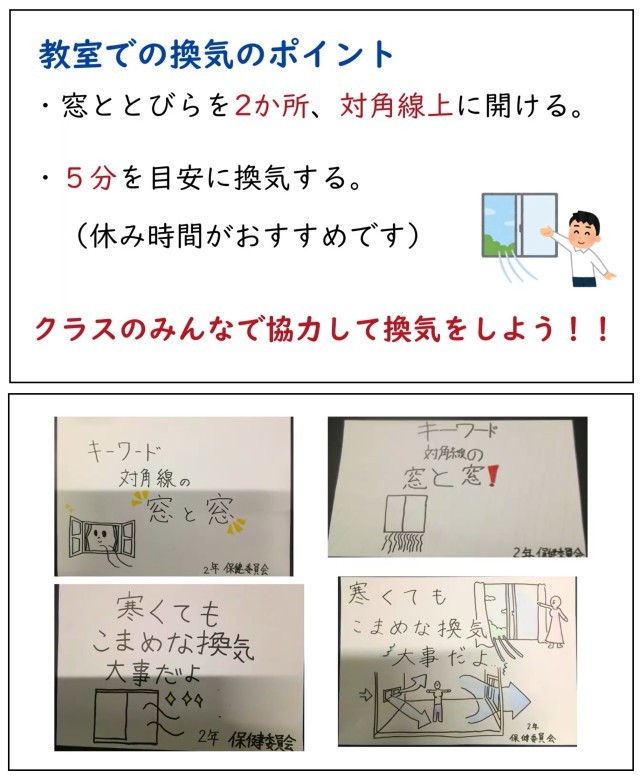 教室での換気のポイント
・窓ととびらを2か所、対角線上に開ける。
・５分を目安に換気する。
（休み時間がおすすめです）
クラスのみんなで協力して換気をしよう！！
キーワード
対角線の
窓と窓
2年 保健委員会
キーワード
対角線の
窓と窓!
2年 保健委員会
寒くても
こまめな換気
大事だよ
2年 保健委員会
寒くても
こまめな換気
大事だよ
2年
保健委員会